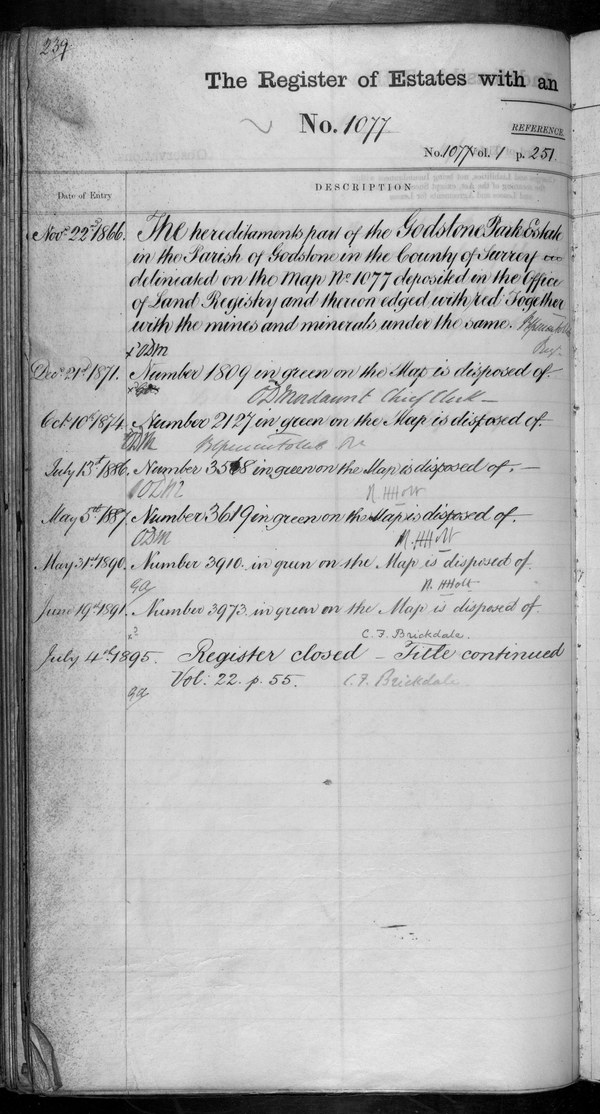 239
The Register of Estates with an
No. 1077
REFERENCE.
No. 1077 Vol. 1 p. 251.
Date of Entry
DESCRIPTION
Novr. 22d. 1866. The hereditaments part of the Godstone Park Estate
in the Parish of Godstone in the County of Surrey
delineated on the Map No 1077 deposited in the Office
of Land Registry and thereon edged with red Together
with the mines and minerals under the same.
ODM
Decr 21st 1871. Number 1809 in green on the Map is disposed of.
ODMordaunt Chief Clerk
Oct 10th 1874. Number 2127 in green on the Map is disposed of.
ODM
July 13th 1886. Number 3518 in green on the Map is disposed of.
ODM R. HHolt
May 5th 1887. Number 3619 in green on the Map is disposed of.
ODM R. HHolt
May 31st 1890. Number 3910. in green on the Map is disposed of.
GA R. HHolt
June 19th 1891. Number 3973. in green on the Map is disposed of.
C. F. Brickdale.
July 4th 1895. Register closed – Title continued
Vol: 22. p. 55. C. F. Brickdale.
GA